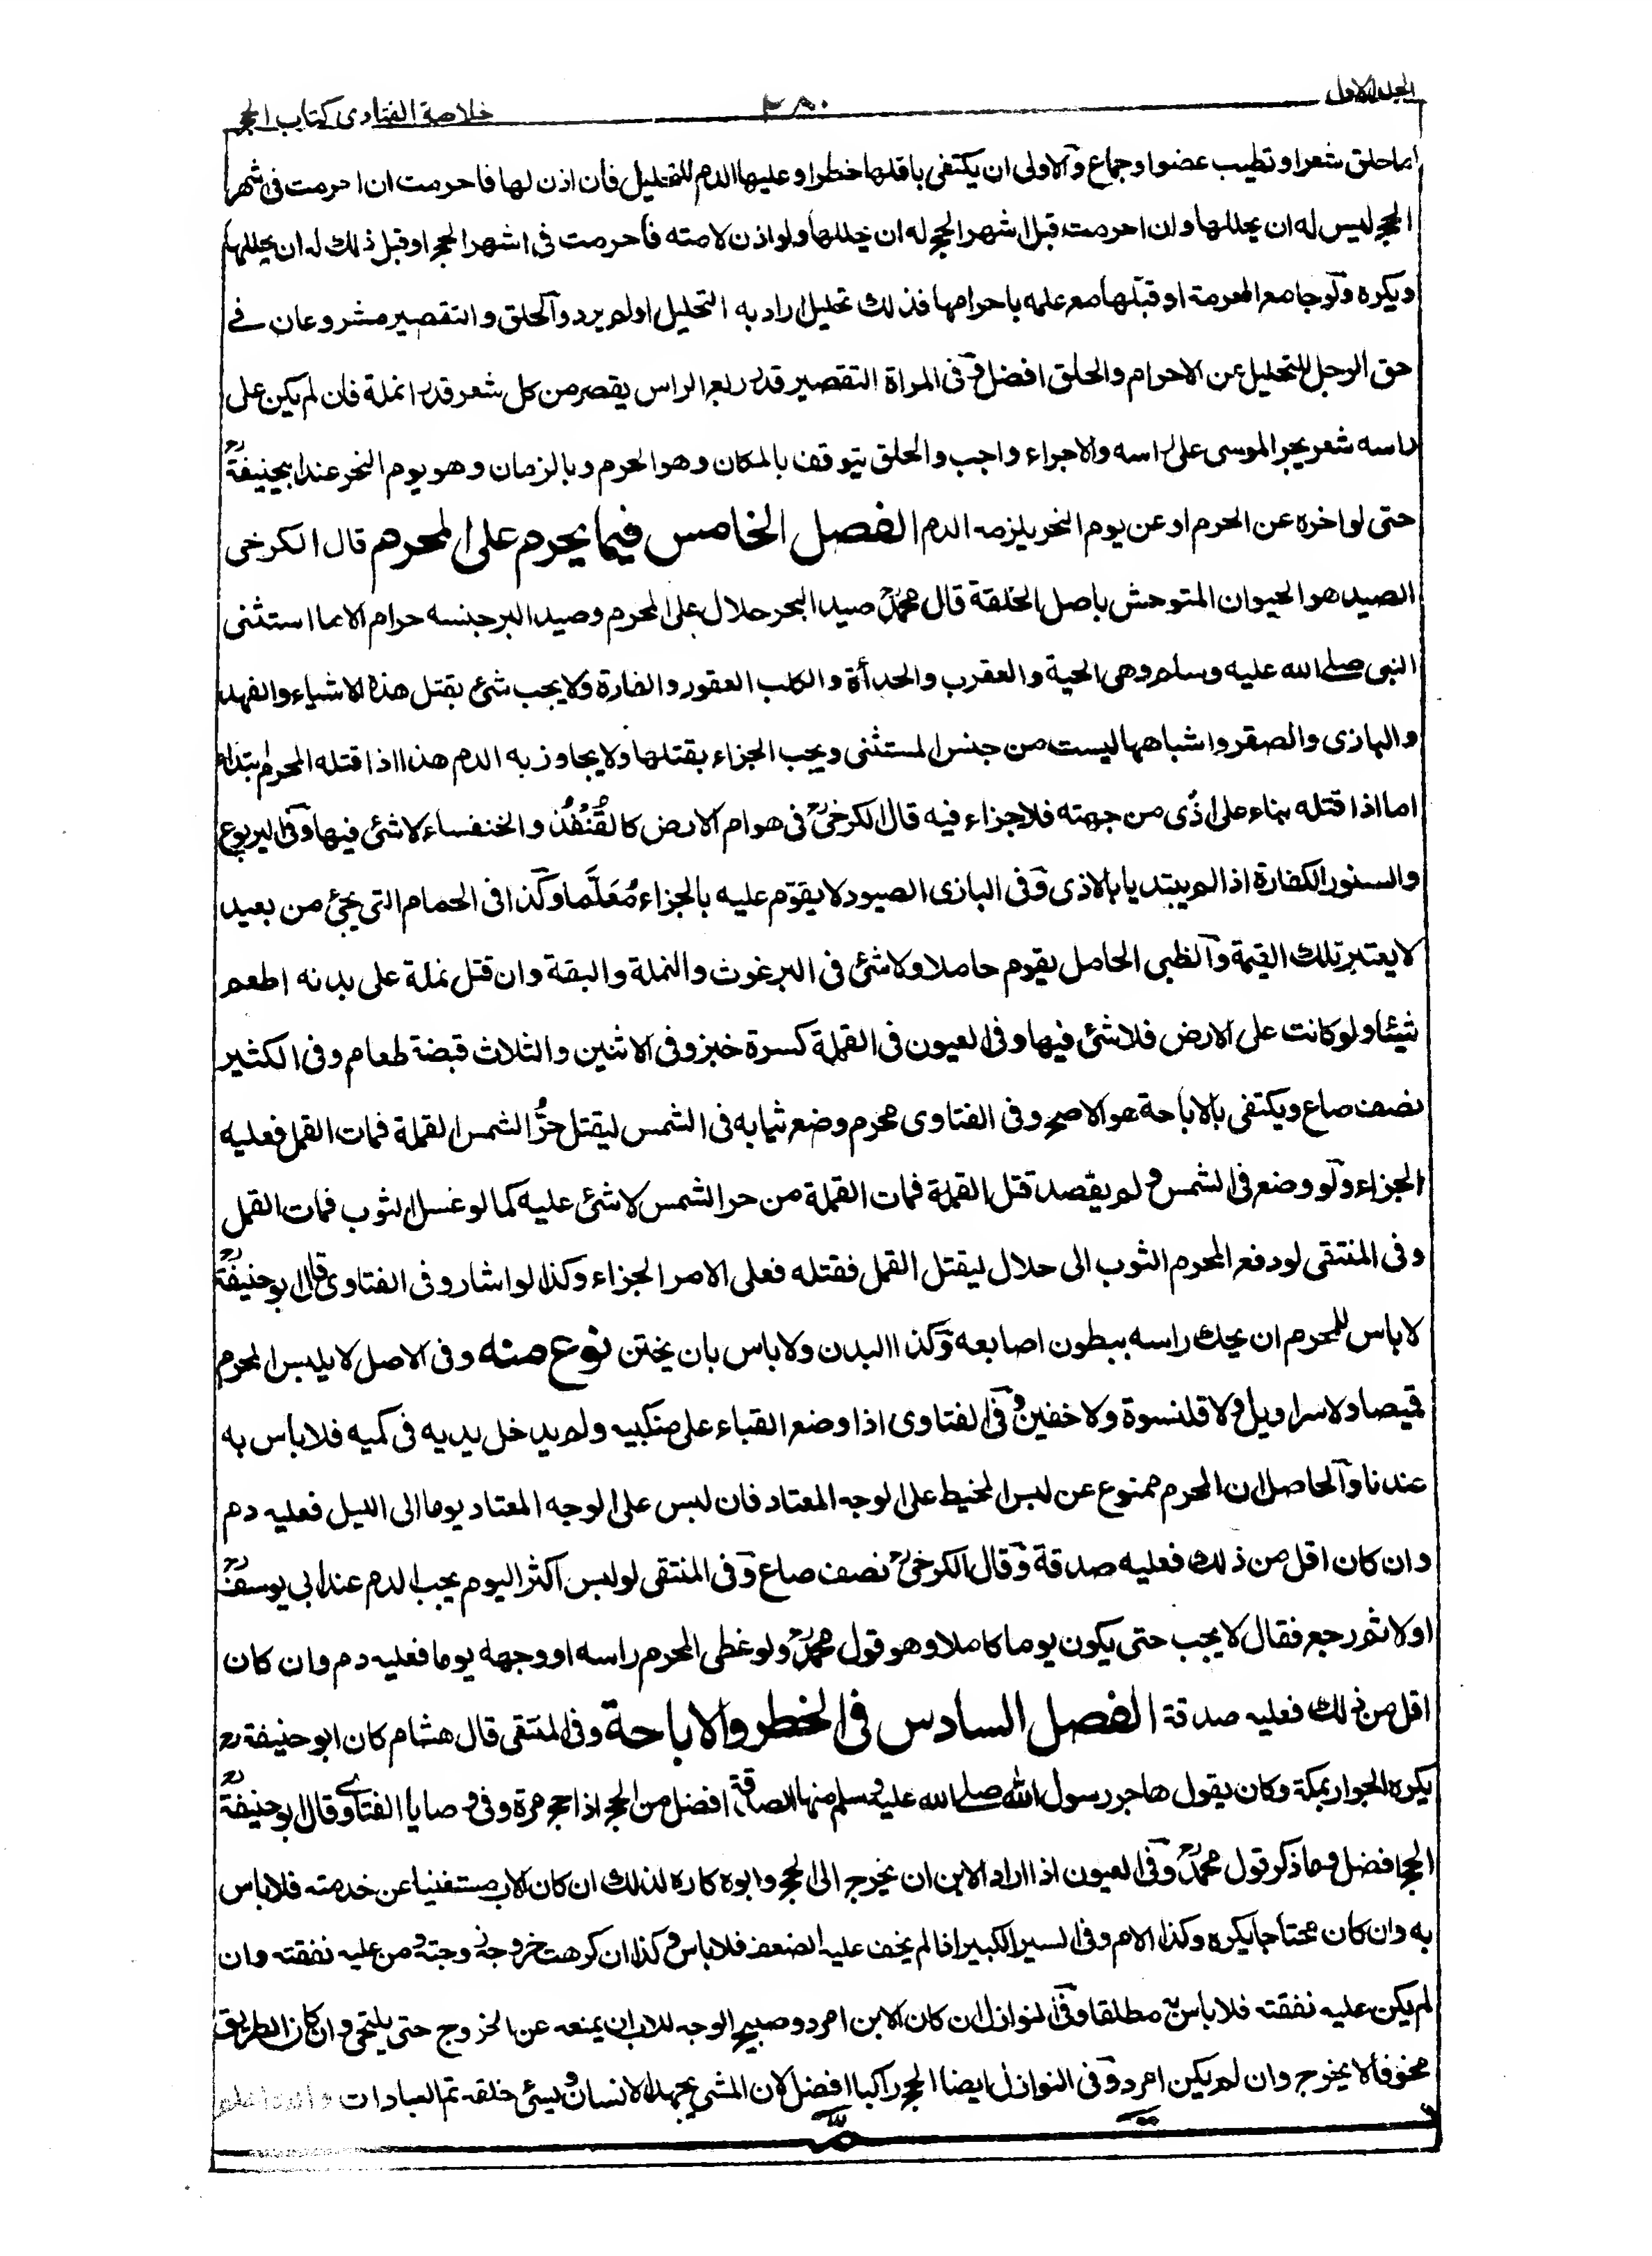 الجلد الاول ٢٨٠ خلاصة الفتاوى كتاب الحج
اما حلق شعر او تطيب عضو او جماع والاولى ان يكتفى باقلها خطرا وعليها الدم للتحليل فان اذن لها فاحرمت ان احرمت فى شهر
الحج ليس له ان يحللها وان احرمت قبل اشهر الحج له ان يحللها ولو اذن لامته فاحرمت فى اشهر الحج او قبل ذلك له ان يحللها
ويكره ولو جامع المحرمة او قبلها مع علمه باحرامها فذلك تحليل اراد به التحليل اولم يرد والحلق والتقصير مشروعان فے
حق الرجل للتحليل عن الاحرام والحلق افضل وفى المراة التقصير قدر ربع الراس يقصر من كل شعر قدر انملة فان لم يكن على
راسه شعر يجر الموسى على راسه والاجراء واجب والحلق يتوقف بالمكان وهو الحرم وبالزمان وهو يوم النحر عند ابيحنيفةؒ
حتى لو اخره عن الحرم او عن يوم النحر يلزمه الدم الفصل الخامس فيما يحرم على المحرم قال الكرخى
الصيد هو الحيوان المتوحش باصل الخلقة قال محمدؒ صيد البحر حلال على المحرم وصيد البر جنسه حرام الا ما استثنى
النبى صلے الله عليه وسلم وهى الحية والعقرب والحدأة والكلب العقور والفارة ولا يجب شئ بقتل هذه الاشياء والفهد
والبازى والصقر واشباهها ليست من جنس المستثنى ويجب الجزاء بقتلها ولا يجاوز به الدم هذا اذا قتله المحرم ابتداء
اما اذا قتله بناء على اذًى من جهته فلا جزاء فيه قال الكرخىؒ فى هوام الارض كالقُنْفُذ والخنفساء لا شئ فيها وفى اليربوع
والسنور الكفارة اذا لم يبتديا بالاذى وفى البازى الصيود لا يقوّم عليه بالجزاء مُعَلَّما وكذا فى الحمام التى تجئ من بعيد
لا يعتبر تلك القيمة والظبى الحامل يقوم حاملا ولا شئ فى البرغوث والنملة والبقة وان قتل نملة على بدنه اطعم
شيئا ولو كانت على الارض فلا شئ فيها وفى العيون فى القملة كسرة خبز وفى الاثنين والثلاث قبضة طعام وفى الكثير
نصف صاع ويكتفى بالاباحة هو الاصح وفى الفتاوى محرم وضع ثيابه فى الشمس ليقتل حرُّ الشمس القملة فمات القمل فعليه
الجزاء ولو وضع فى الشمس ولم يقصد قتل القملة فمات القملة من حر الشمس لا شئ عليه كما لو غسل الثوب فمات القمل
وفى المنتقى لو دفع المحرم الثوب الى حلال ليقتل القمل فقتله فعلى الامر الجزاء وكذا لو اشار وفى الفتاوى قال ابو حنيفةؒ
لا باس للمحرم ان يحك راسه ببطون اصابعه وكذا البدن ولا باس بان يختتن نوع منه وفى الاصل لا يلبس المحرم
قميصا ولا سراويل ولا قلنسوة ولا خفين وفى الفتاوى اذا وضع القباء على منكبيه ولم يدخل يديه فى كميه فلا باس به
عندنا والحاصل ان المحرم ممنوع عن لبس المخيط على الوجه المعتاد فان لبس على الوجه المعتاد يوما الى الليل فعليه دم
وان كان اقل من ذلك فعليه صدقة وقال الكرخىؒ نصف صاع وفى المنتقى لو لبس اكثر اليوم يجب الدم عند ابى يوسفؒ
اولا ثم رجع فقال لا يجب حتى يكون يوما كاملا وهو قول محمدؒ ولو غطى المحرم راسه او وجهه يوما فعليه دم وان كان
اقل من ذلك فعليه صدقة الفصل السادس فى الخطر والاباحة وفى المنتقى قال هشام كان ابو حنيفة رح
يكره الجوار بمكة وكان يقول هاجر رسول الله صلے الله عليه وسلم منها الصدقة افضل من الحج اذا حج مرة وفى وصايا الفتاوے وقال ابو حنيفةؒ
الحج افضل وما ذكر قول محمدؒ وفى العيون اذا اراد الابن ان يخرج الى الحج وابوه كاره لذلك ان كان الاب مستغنيا عن خدمته فلا باس
به وان كان محتاجا يكره وكذا الام وفى السير الكبير اذا لم يخف عليه الضعف فلا باس وكذا ان كرهت خروجه زوجته ومن عليه نفقته وان
لم يكن عليه نفقته فلا باس به مطلقا وفى النوازل ان كان الابن امرد وصبيح الوجه للاب ان يمنعه عن الخروج حتى يلتحى وان كان الطريق
مخوفا لا يخرج وان لم يكن امرد وفى النوازل ايضا الحج راكبا افضل لان المشى يجهد الانسان ويسئ خلقه تم العبادات والله اعلم